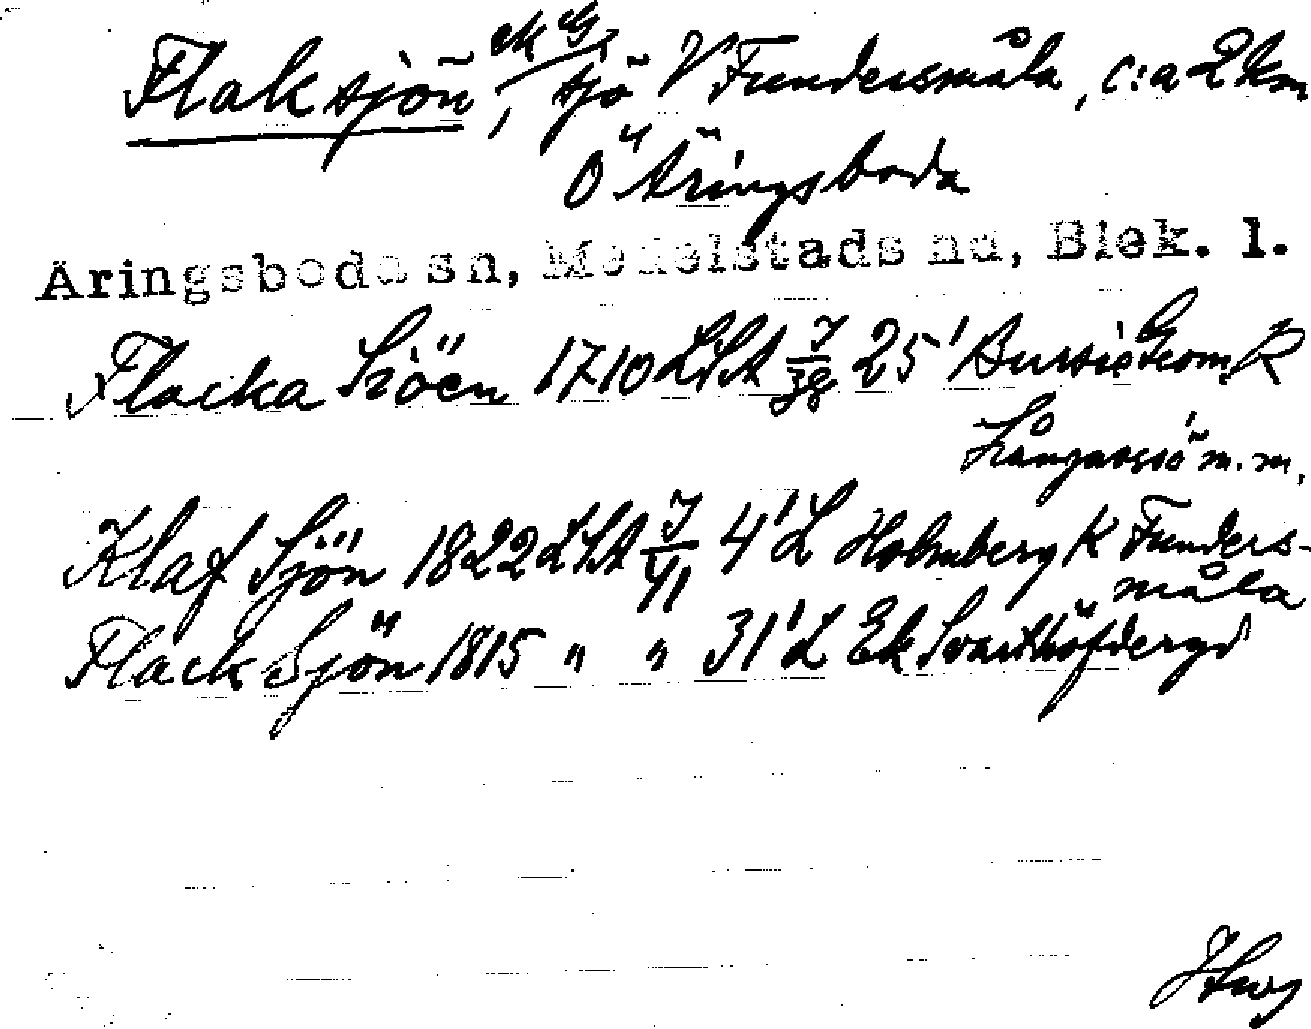 Flaksjön, ek G, sjö V Fundersmåla, c:a 2 km
Ö Äringsboda
Äringsboda sn, Medelstads hd, Blek. l.
Flacka Siöen 1710 LSA 25' Geom K
Långasjö m.m.
Klaf Sjön 1822 LSA 4' L Holmberg K Funders-
måla
Flack Sjön 1815 " " 31' L Ek Svarthöfdergd